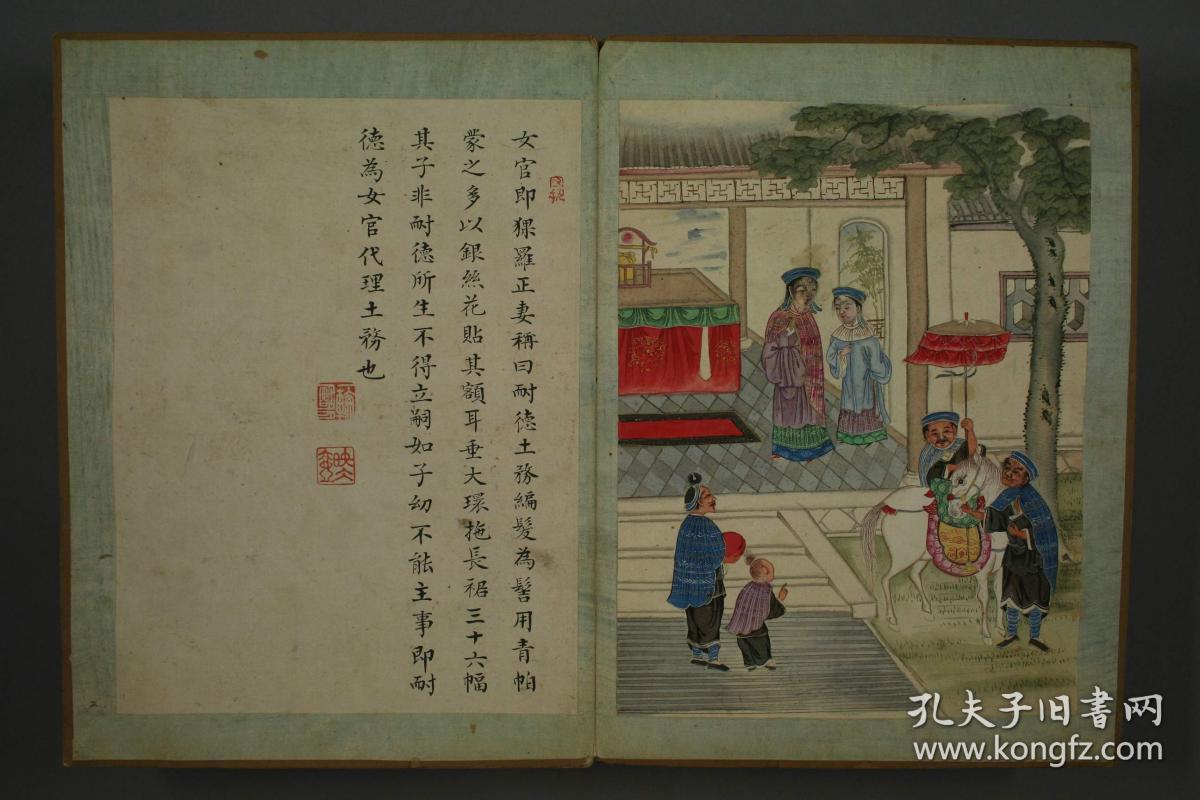 女官即猓羅正妻稱曰耐德土務編髮為髻用青帕
蒙之多以銀絲花貼其額耳垂大環拖長裾三十六幅
其子非耐德所生不得立嗣如子幼不能主事即耐
德為女官代理土務也
孔夫子旧書网
www.kongfz.com